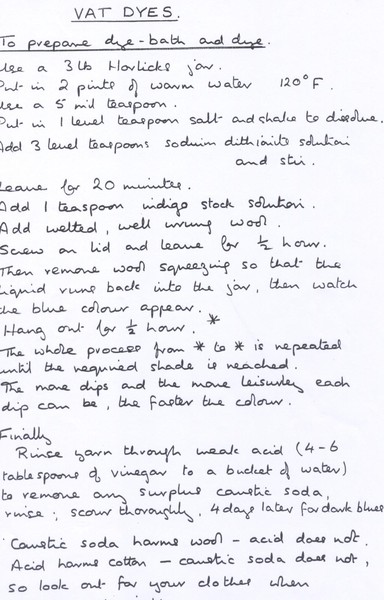 VAT DYES.
To prepare dye-bath and dye.
Use a 3 lb Horlicks jar.
Put in 2 pints of warm water 120°F.
Use a 5 mil teaspoon.
Put in 1 level teaspoon salt and shake to dissolve.
Add 3 level teaspoons sodium dithionite solution
and stir.
Leave for 20 minutes.
Add 1 teaspoon indigo stock solution.
Add wetted, well wrung wool.
Screw on lid and leave for ½ hour.
Then remove wool squeezing so that the
liquid runs back into the jar, then watch
the blue colour appear.
Hang out for ½ hour. *
The whole process from * to * is repeated
until the required shade is reached.
The more dips and the more leisurely each
dip can be, the faster the colour.
Finally
Rinse yarn through weak acid (4-6
tablespoons of vinegar to a bucket of water)
to remove any surplus caustic soda,
rinse; scour thoroughly, 4 days later for dark blues
Caustic soda harms wool - acid does not.
Acid harms cotton - caustic soda does not,
so look out for your clothes when